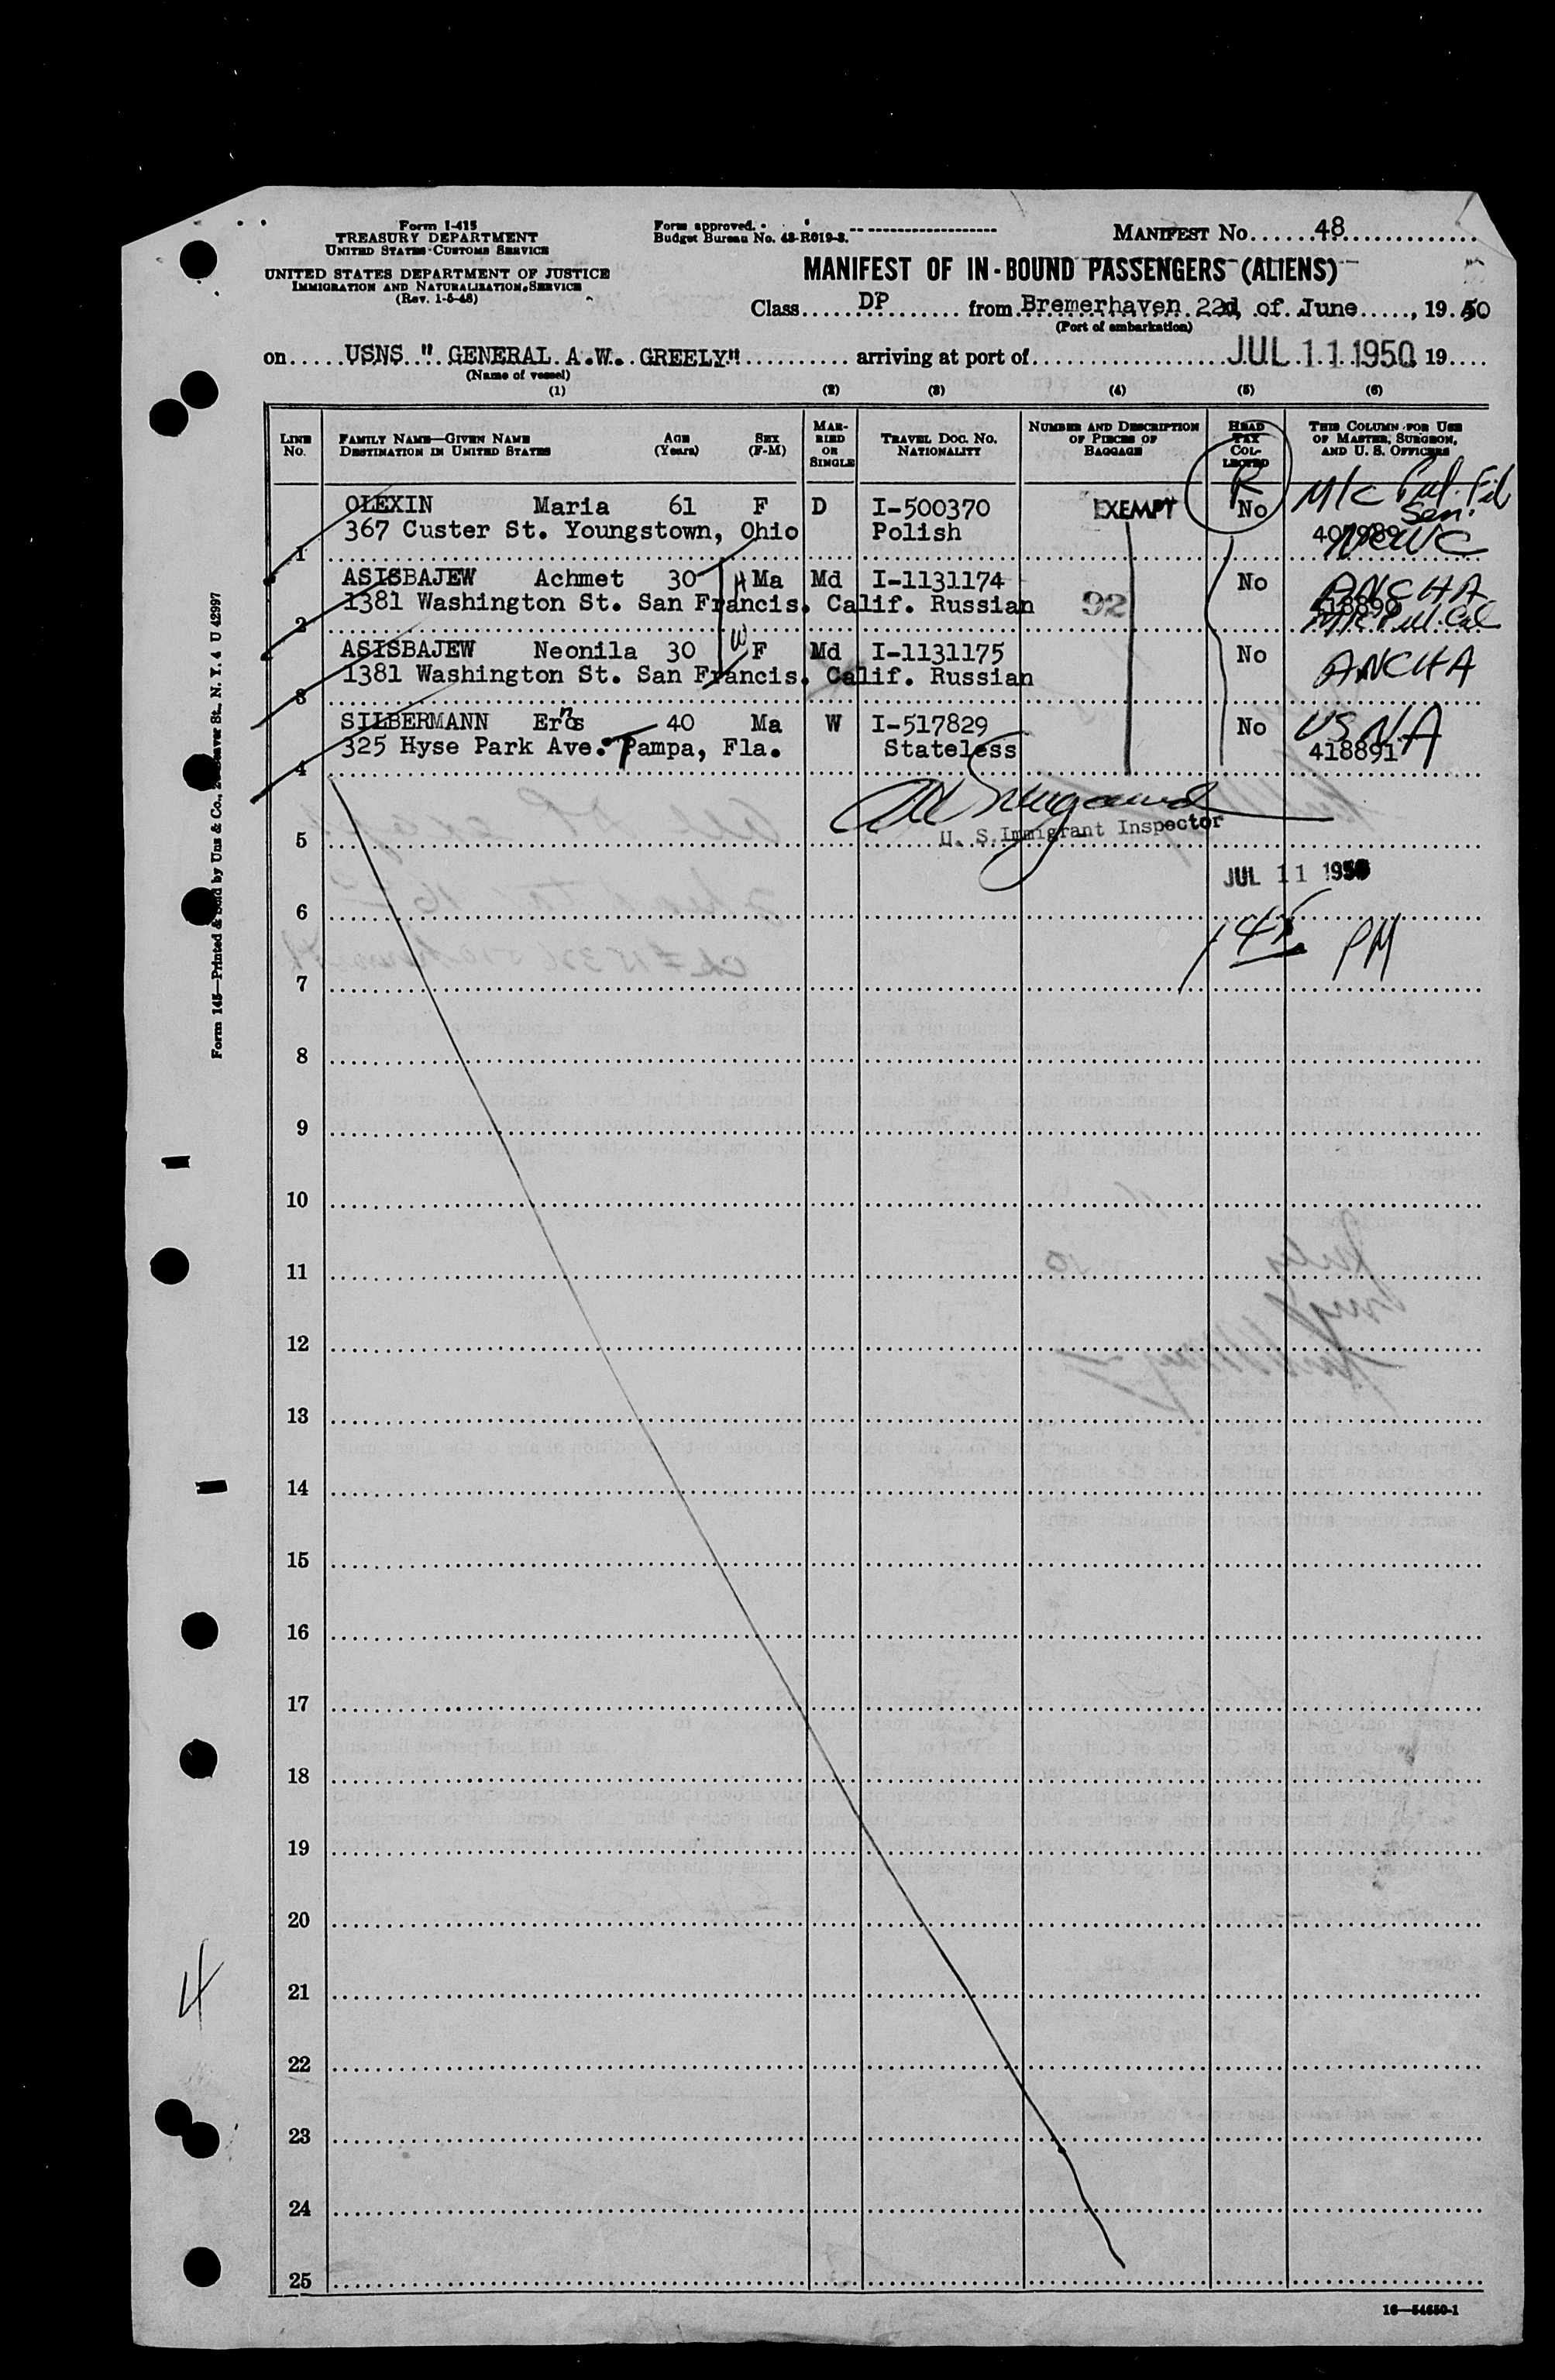 Form I-415
TREASURY DEPARTMENT
UNITED STATES CUSTOMS SERVICE
UNITED STATES DEPARTMENT OF JUSTICE
IMMIGRATION AND NATURALIZATION SERVICE
(Rev. 1-5-48)
Form approved.
Budget Bureau No. 43-R019-3.
MANIFEST NO. 48
MANIFEST OF IN-BOUND PASSENGERS (ALIENS)
Class DP from Bremerhaven 22d, of June, 19 50
(Port of embarkation)
on USNS " GENERAL A.W. GREELY" arriving at port of JUL 11 1950 19
(Name of vessel)
(1) (2) (3) (4) (5) (6)
LINE NO. FAMILY NAME—GIVEN NAME DESTINATION IN UNITED STATES AGE (Years) SEX (F-M) MARRIED OR SINGLE TRAVEL DOC. NO. NATIONALITY NUMBER AND DESCRIPTION OF PIECES OF BAGGAGE HEAD TAX COLLECTED THIS COLUMN FOR USE OF MASTER, SURGEON, AND U. S. OFFICERS
R M/C
OLEXIN Maria 61 F D I-500370 EXEMPT No
1 367 Custer St. Youngstown, Ohio Polish NCWC
ASISBAJEW Achmet 30 H Ma Md I-1131174 No ANCHA
2 1381 Washington St. San Francis. Calif. Russian 92 418890
ASISBAJEW Neonila 30 W F Md I-1131175 No ANCHA
3 1381 Washington St. San Francis. Calif. Russian
SILBERMANN Ernos 40 Ma W I-517829 No USNA
4 325 Hyse Park Ave. Tampa, Fla. Stateless 418891
5 U. S. Immigrant Inspector
JUL 11 1950
6
145 PM
7
8
9
10
11
12
13
14
15
16
17
18
19
20
21
22
23
24
25
16—54650-1
Form 145—Printed & Sold by Unz & Co., Beaver St., N. Y. 4 U 42997
4